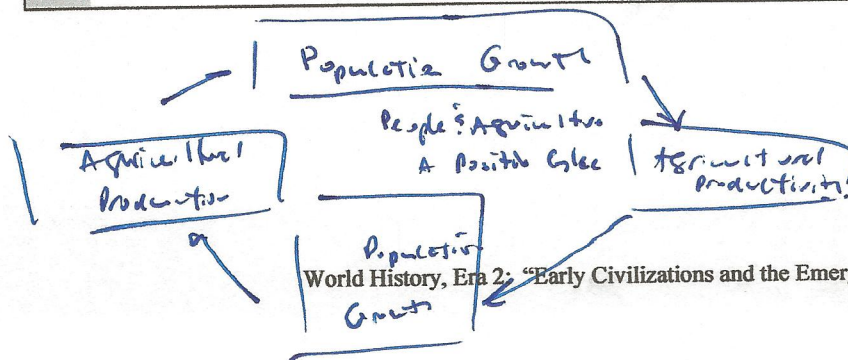 Population Growth
People & Agriculture
A Positive Cycle
Agricultural
Production
Agricultural
Productivity
Population
Growth
World History, Era 2: "Early Civilizations and the Emer